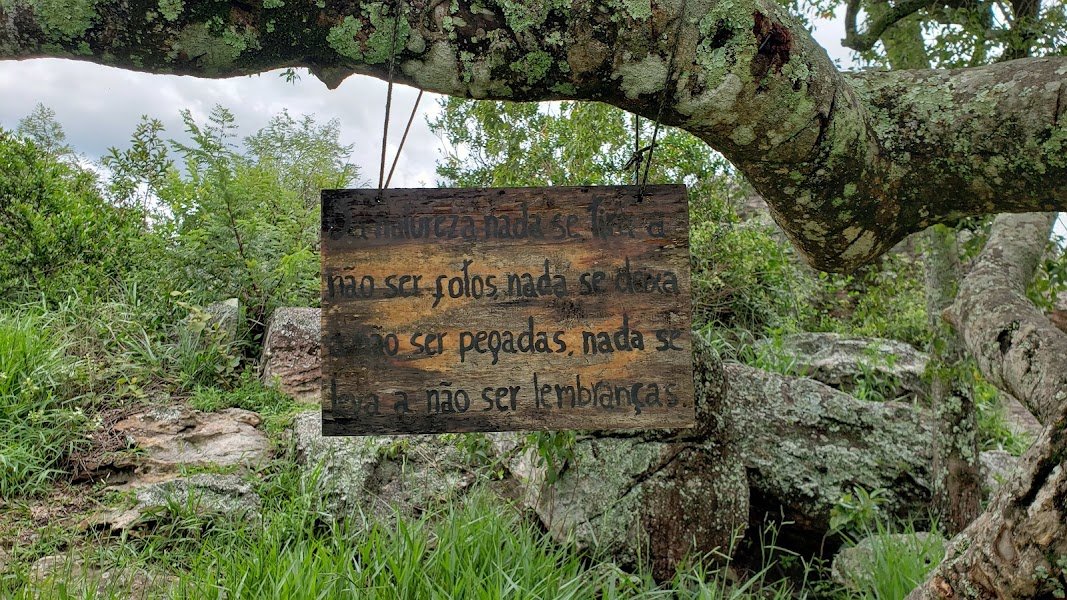 Da natureza nada se tira a
não ser fotos, nada se deixa
a não ser pegadas, nada se
leva a não ser lembranças.